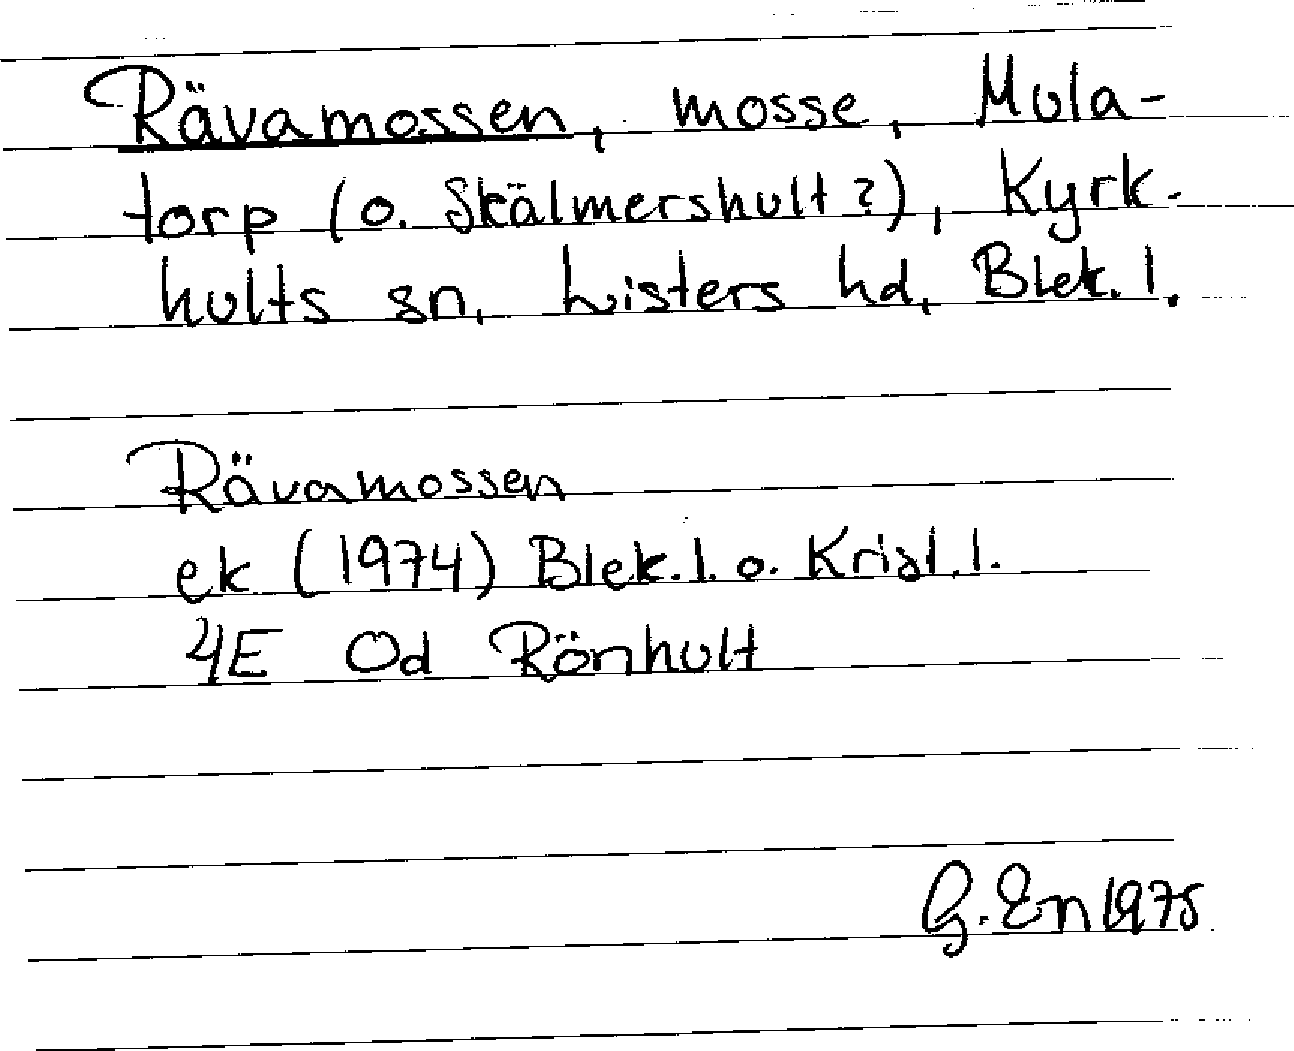 Rävamossen, mosse, Mula-
torp (o. Skälmershult?), Kyrk-
hults sn, Listers hd, Blek. l.
Rävamossen
ek (1974) Blek. l. o. Krist. l.
4E Od Rönhult
G. En 1975